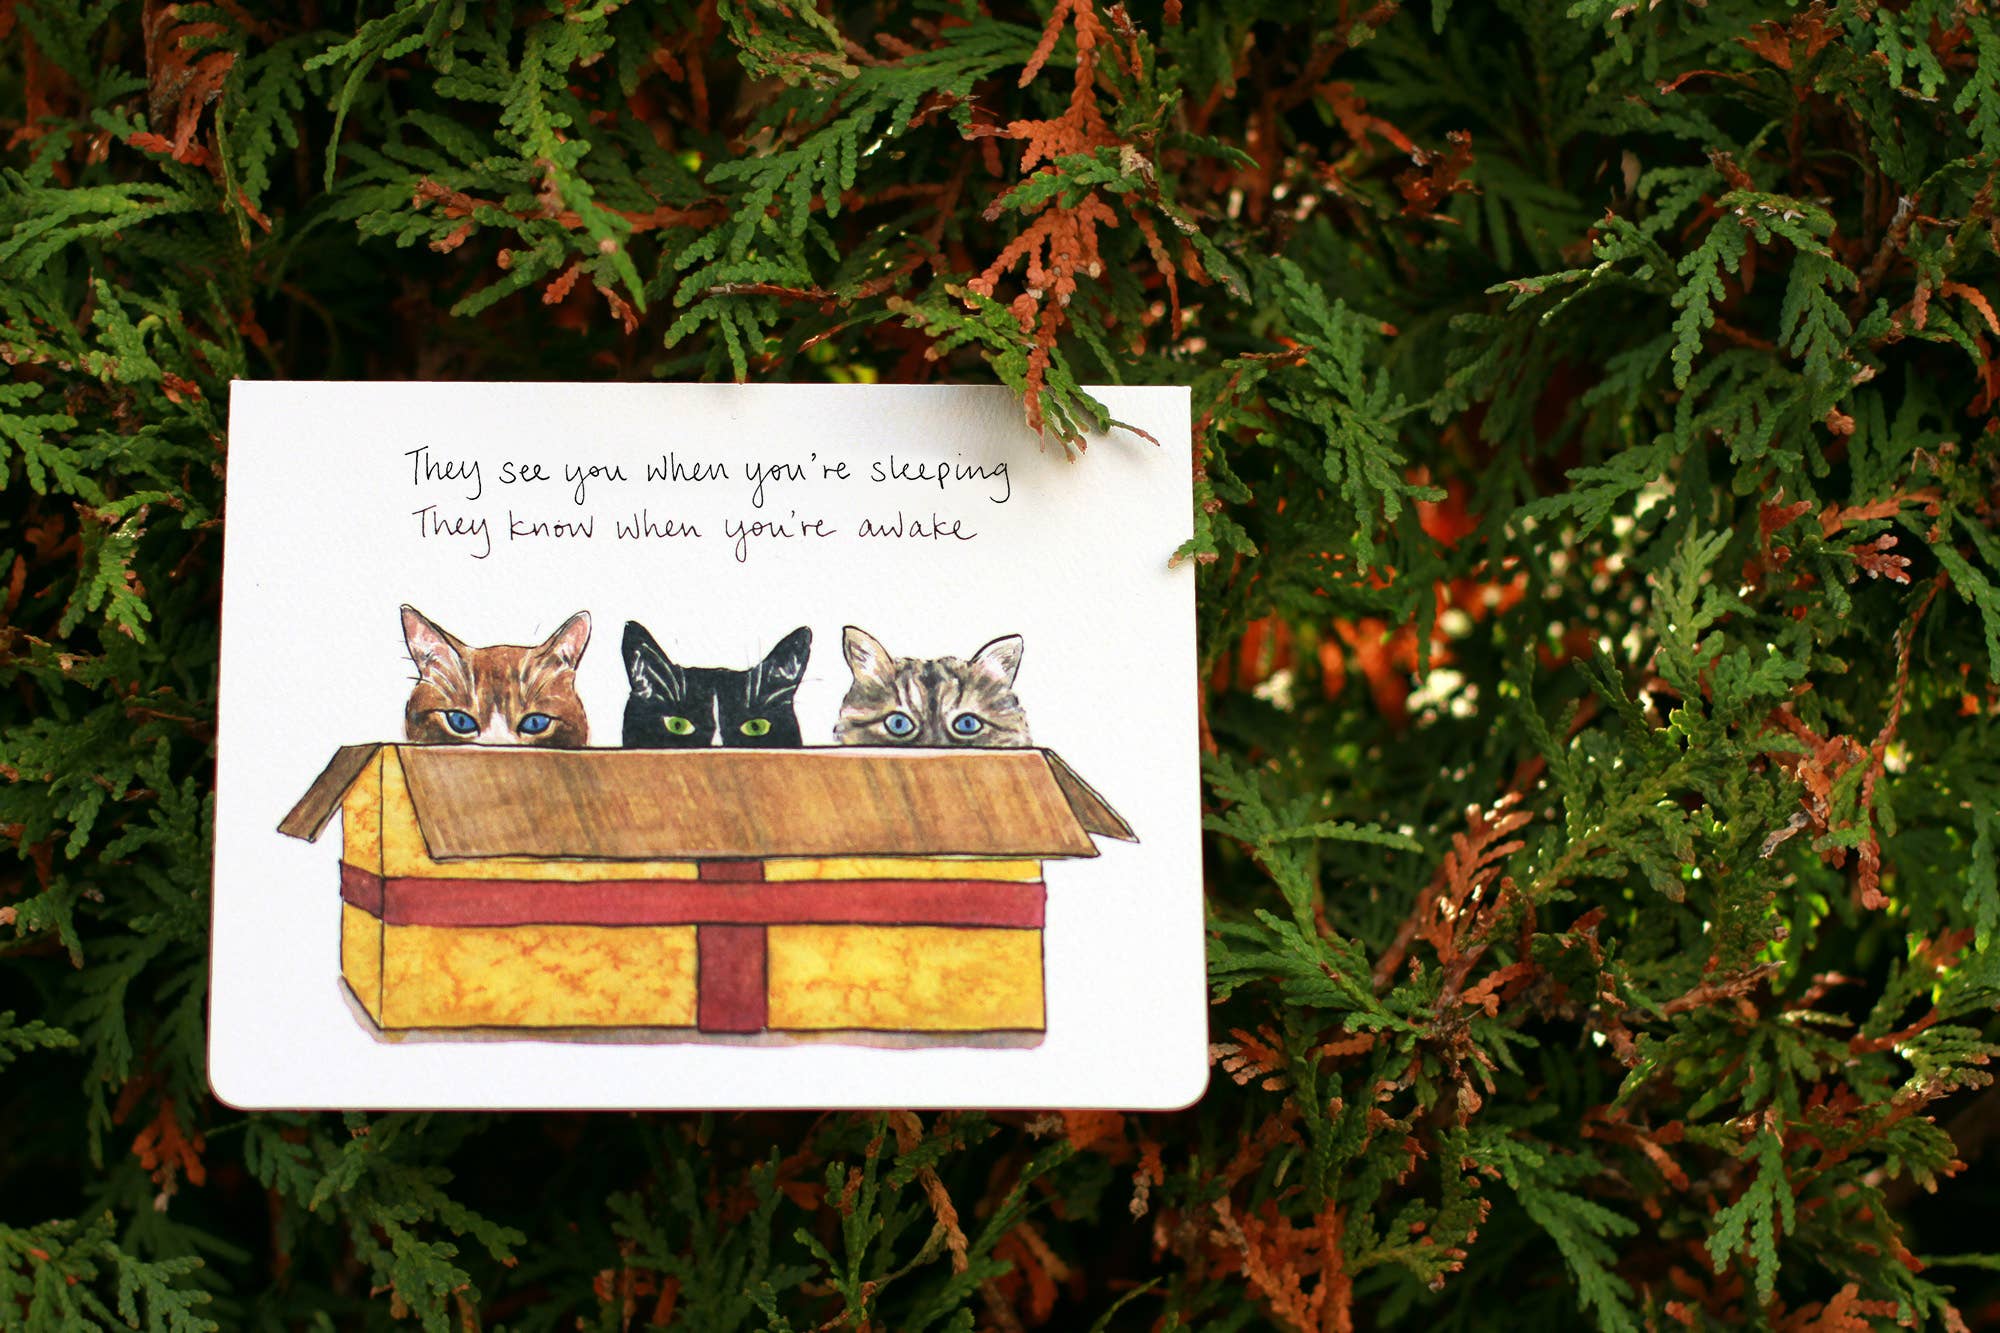 They see you when you're sleeping
They know when you're awake